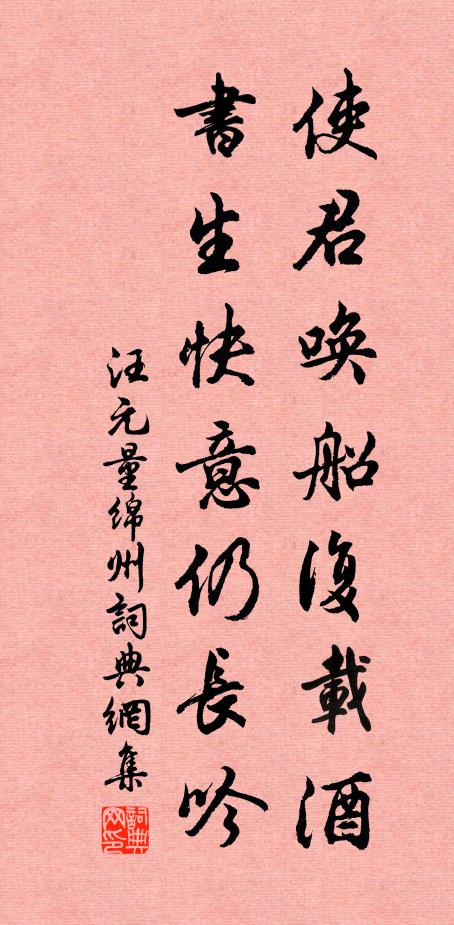 使君喚船復載酒
書生快意仍長吟
汪元量綿州詞典網集
詞典网印